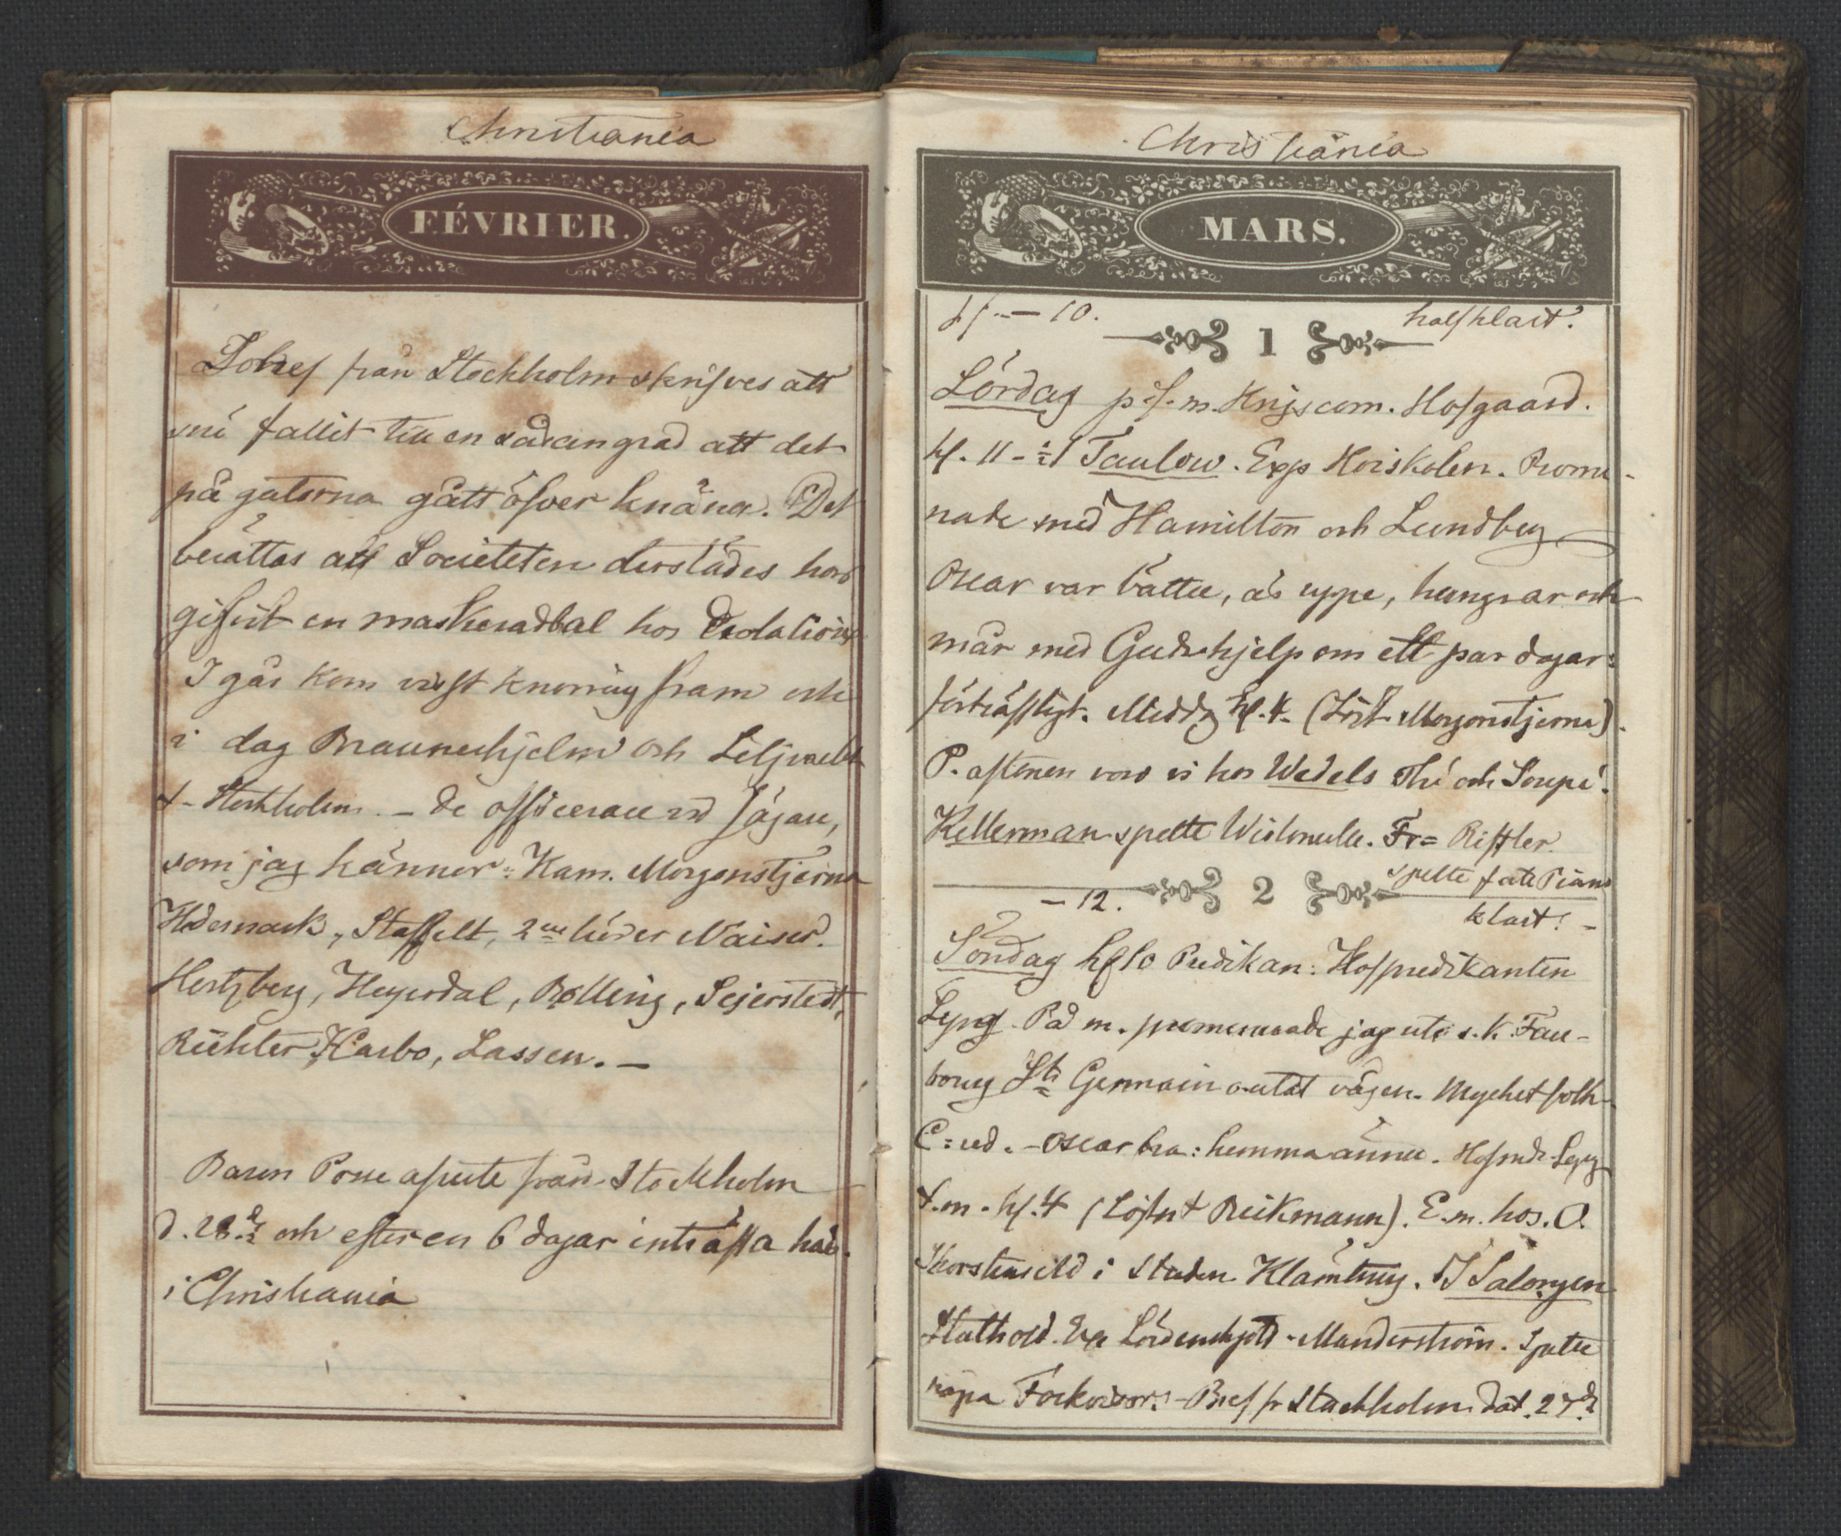 Christiania
FÉVRIER.
från Stockholm skrifves att
snö fallit till en sådan grad att det
på gatorna gått öfver knäna. Det
berättas att Societeten derstädes har
gifvit en maskeradbal hos
I går kom Knorring fram och
i dag Brauneuhjelm och Liljevalch
f. Stockholm. – De officerare vid Jägare,
som jag känner: Kam. Morgenstjerna
Staffelt, 2ne bröder Naiser.
Hertzberg, Heyerdal, Bølling, Sejerstedt,
Richter, Harbo, Lassen. –
Baron Posse afreste från Stockholm
d. 28. och efter en 6 dagar inträffa här
i Christiania
Christiania
MARS.
– 10.
halfklart.
1
Lördag p. f. m. Krigscom. Hofgaard.
kl. 11 – Taulow. Exp Krigskolen. Prome-
nade med Hamilton och Lundberg
Oscar var bättre, är uppe, hungrar och
mår med Guds hjelp om ett par dagar
förträffligt. Midd kl. 4. (Löjt Morgenstjerna).
P. aftonen voro vi hos Wedels Thé och Soupé.
Kellerman spelte Violoncelle. Fr= Riffler
spelte forte Piano
2
– 12.
klart! –
Söndag kl 10 Predikan: Hofpredikanten
P d m. promenerade jag ute s. k. Fau-
bourg St Germain o utåt vägen. Mycket folk
C: red. – Oscar bra: hemma ännu. Hofpred
f. m. kl. 4 (Löjtn Reikmann). E. m. hos. O.
Skorstenseld i Staden Klämtning. I Salongen
Stathold. Exp Lövenskjold Manderström. Spelte
Folkvisor. – Bref fr Stockholm dat. 27.d